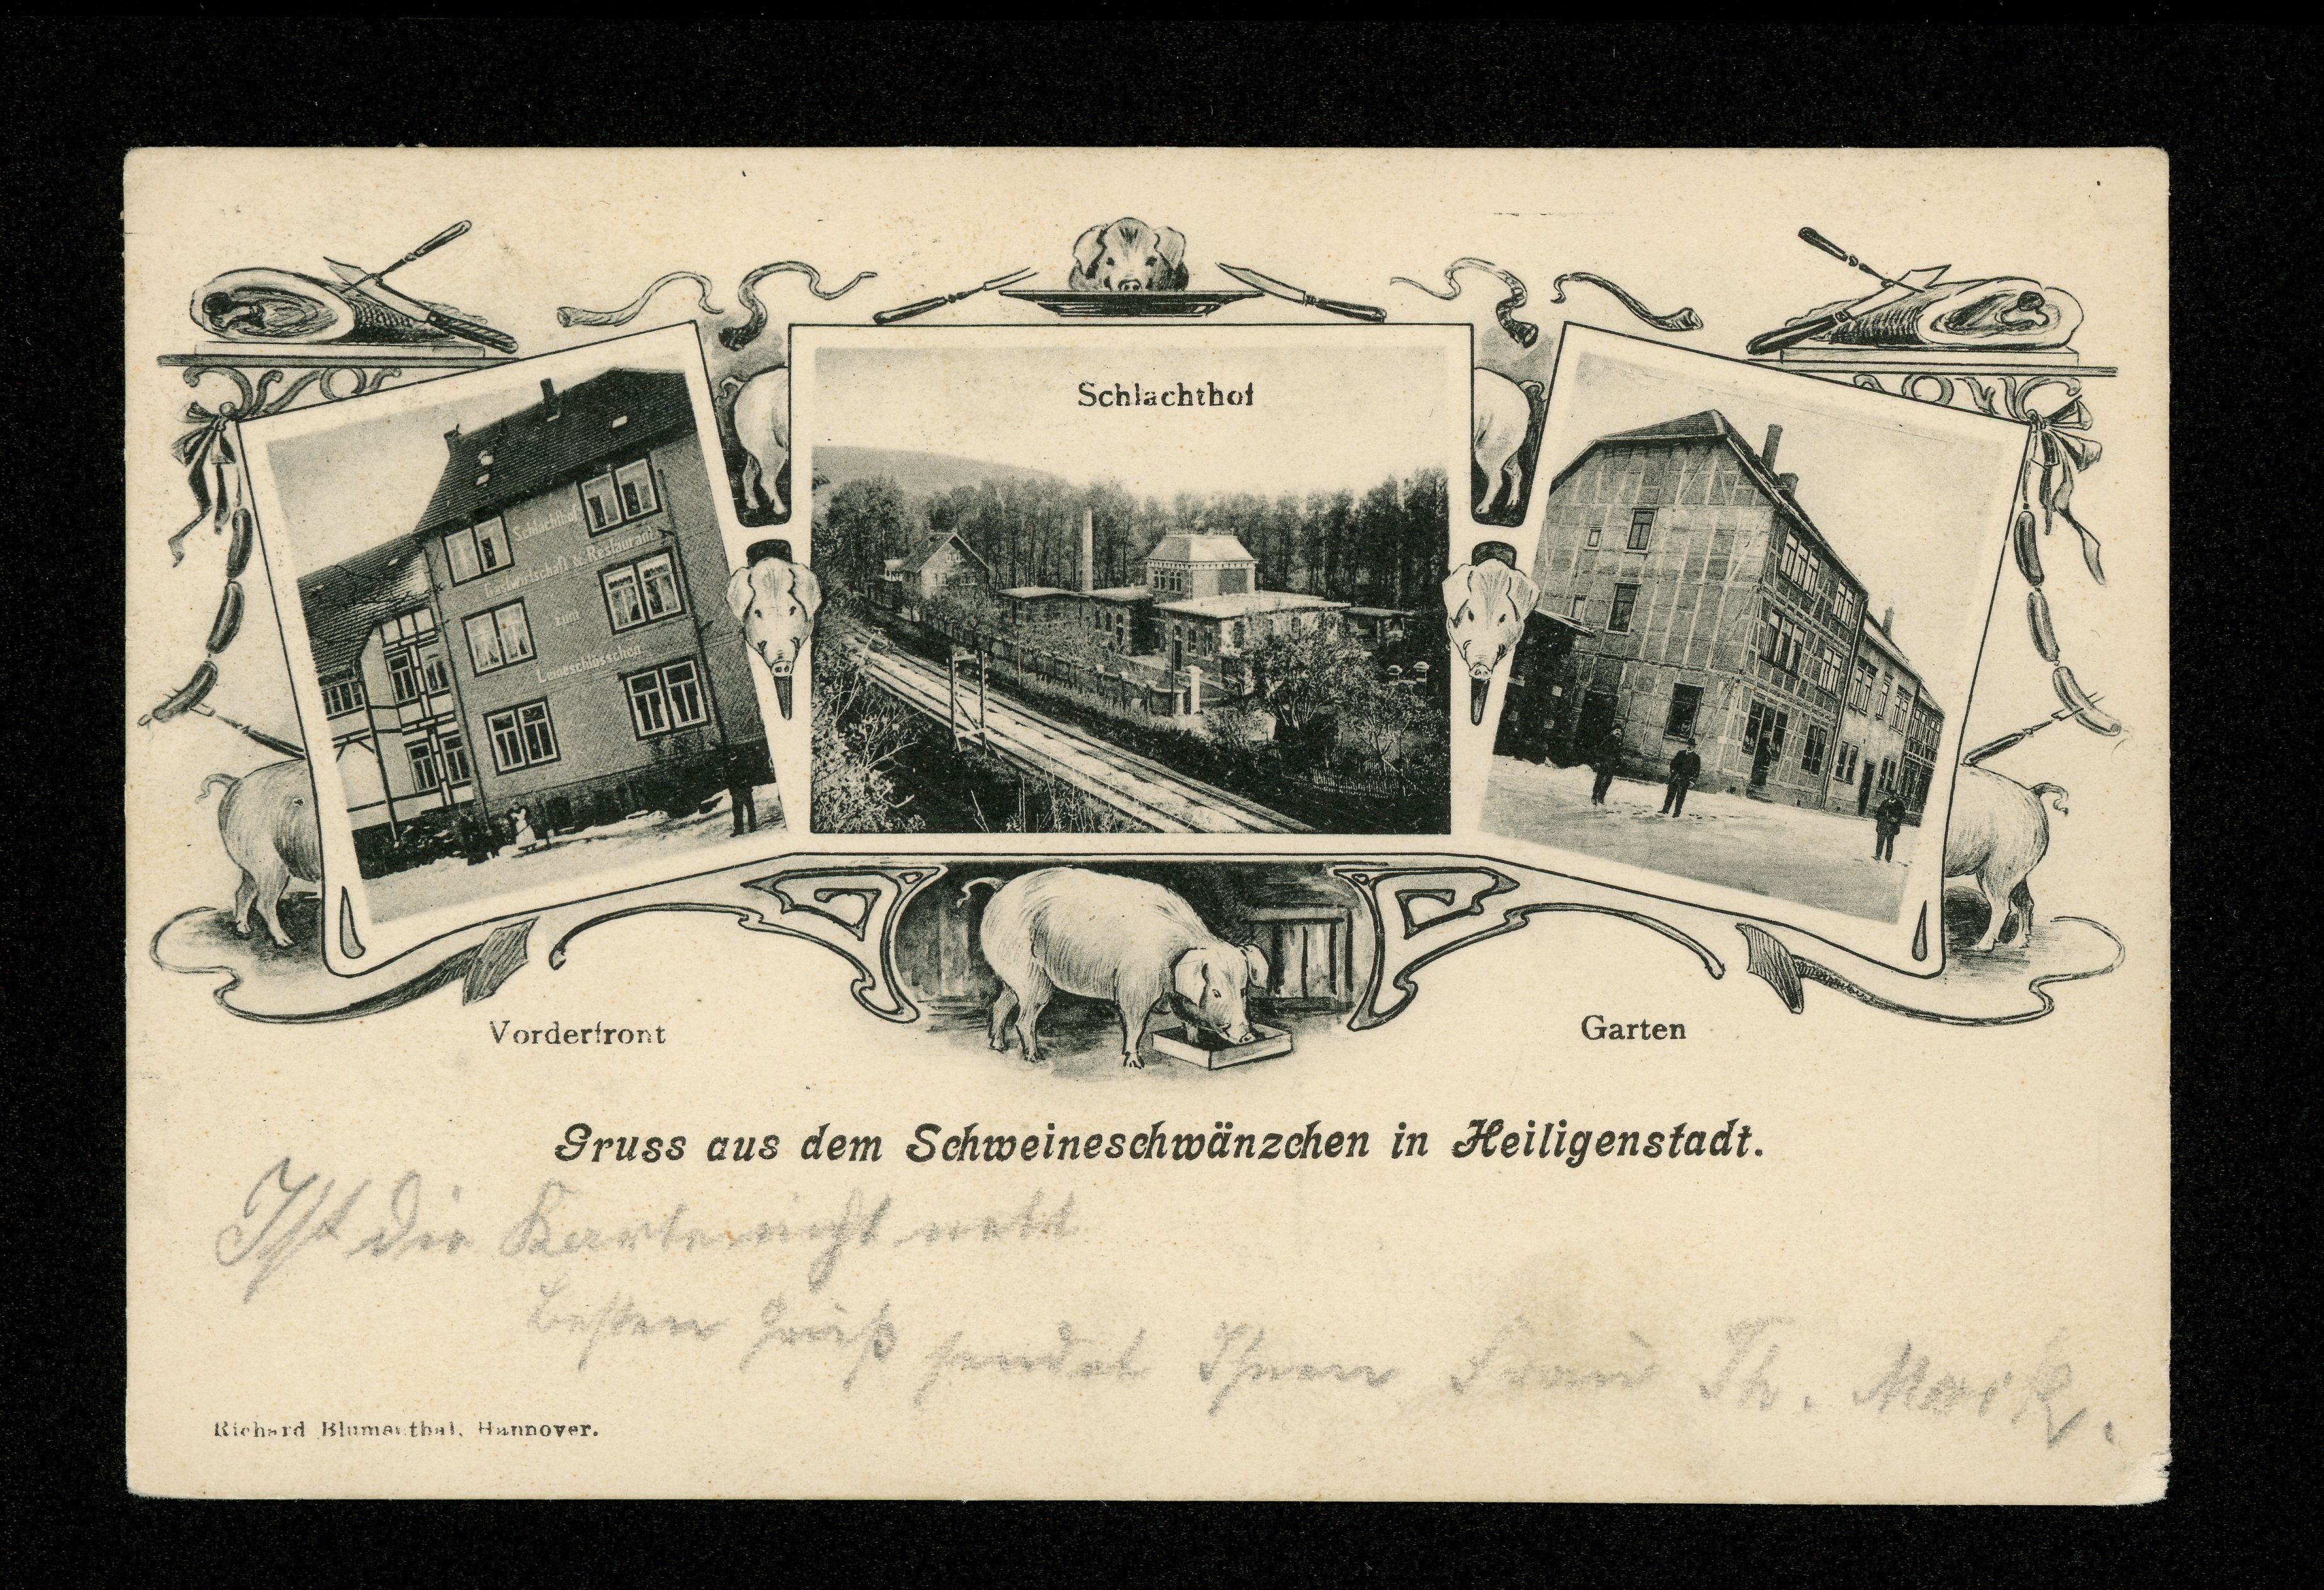 Schlachthof
Schlachthof
Gastwirtschaft & Restaurant
zum
Vorderfront
Garten
Gruss aus dem Schweineschwänzchen in Heiligenstadt.
Ist die Karte nicht nett
besten Gruß sendet Ihnen Frau Th. Mark.
Richard Blumenthal, Hannover.